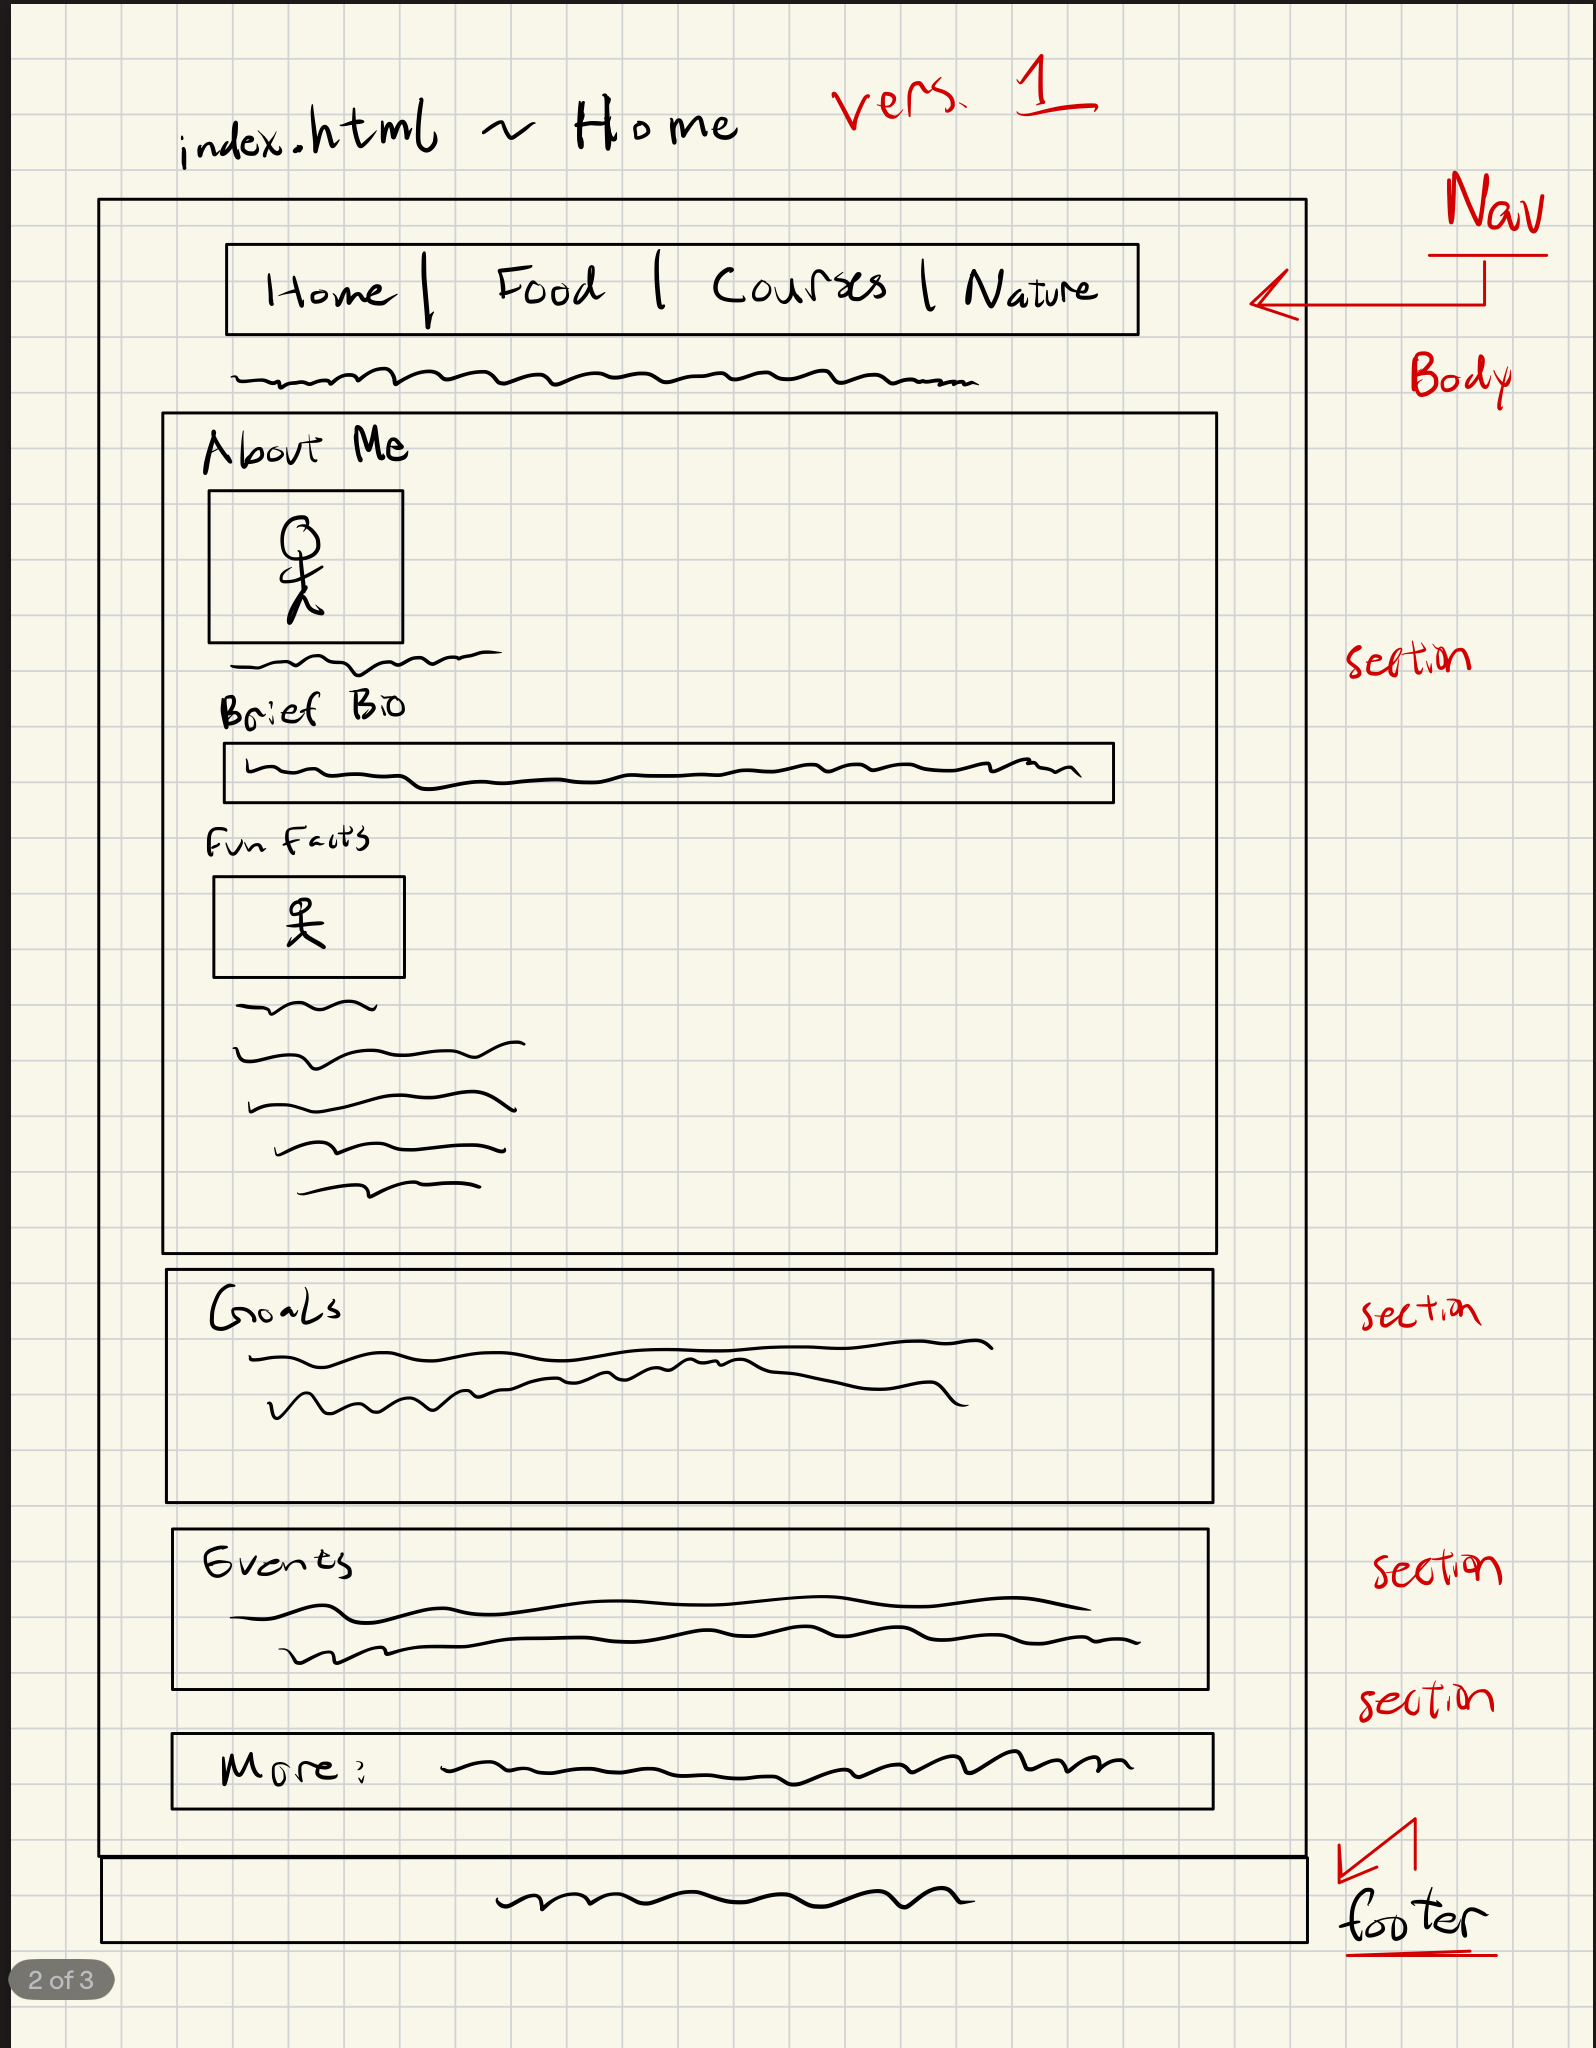 vers. 1
index.html ~ Home
Nav
Home | Food | Courses | Nature
Body
About Me
section
Brief Bio
Fun Facts
Goals
section
Events
section
section
More:
footer
2 of 3